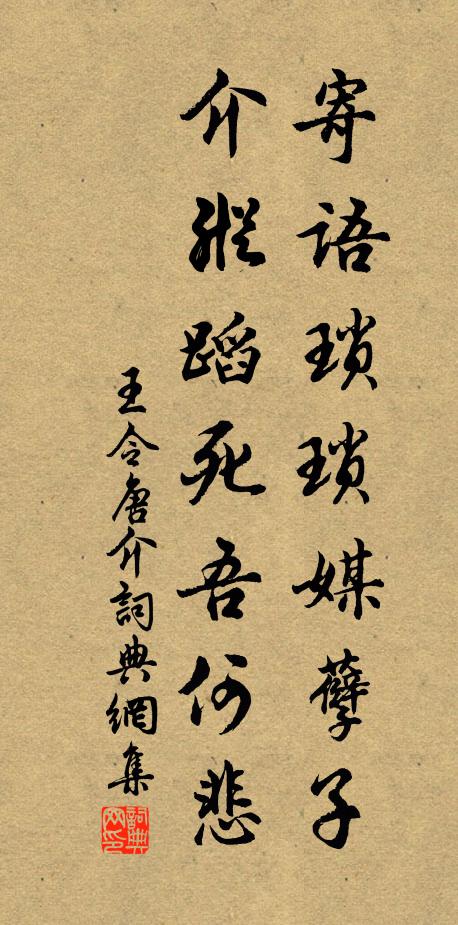 寄語瑣瑣媒孽子
介縱蹈死吾何悲
王令唐介詞典網集
詞典網印